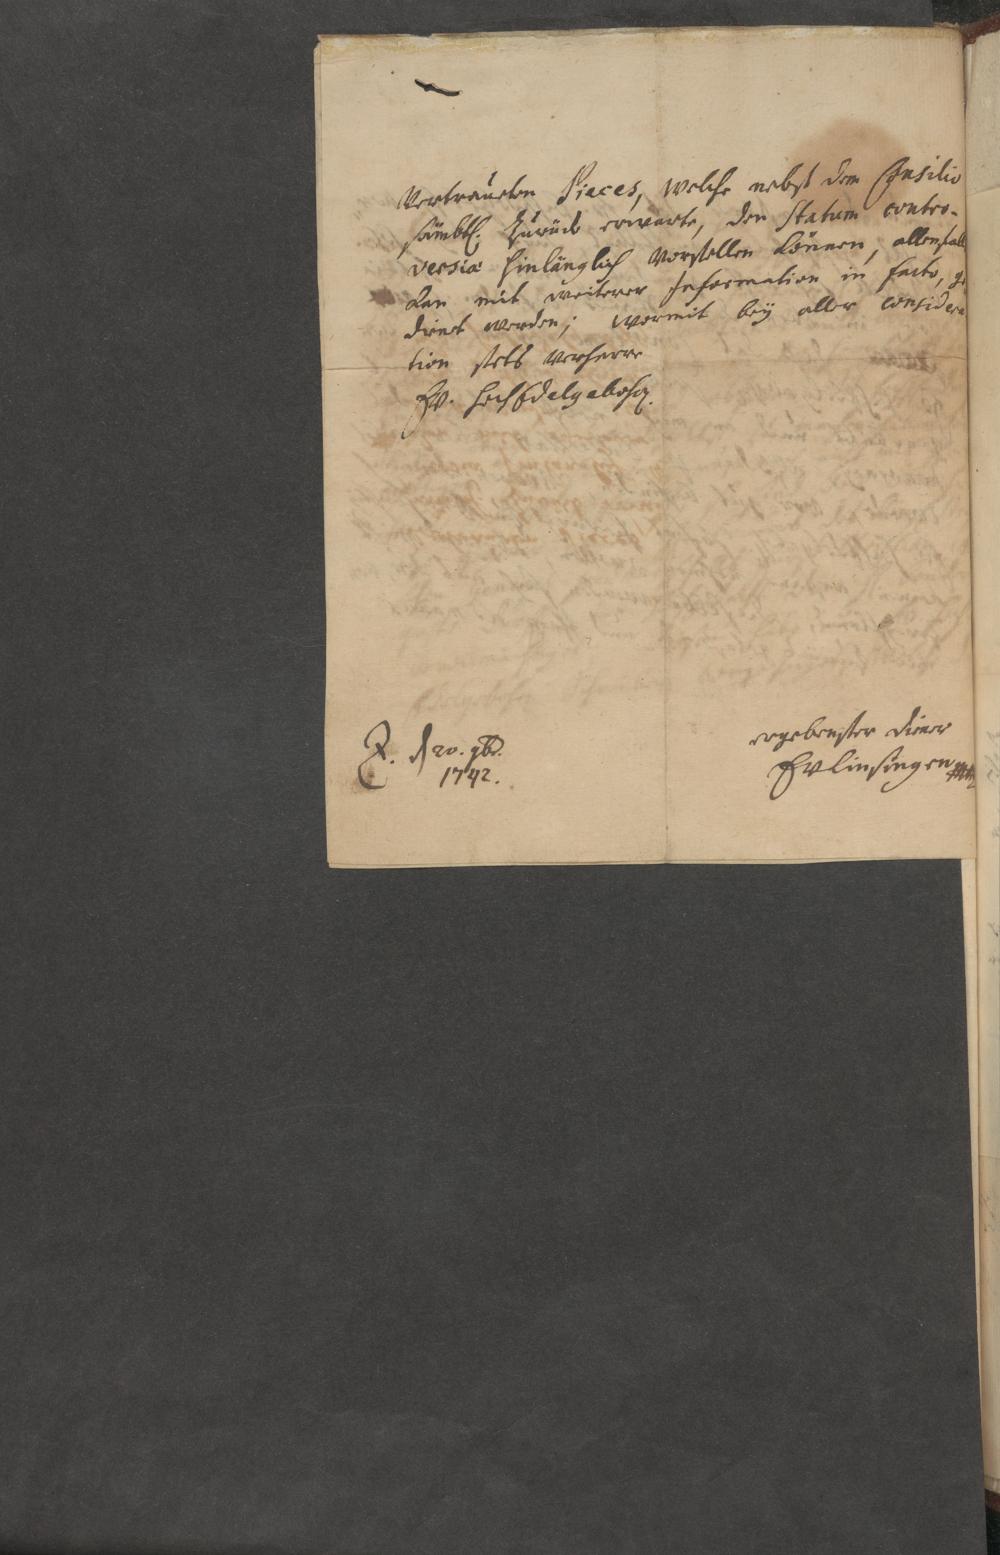 vertraueten Pieces, welche nebst dem Consilio
sämbtl. zurück erwarte, den Statum contro-
versiæ hinlänglich vorstellen können, allenfalls
kan mit weiterer Information in facto, ge
dienet werden; wormit bey aller considera
tion stets verharre
Ew. HochEdelgebohr.
ergebenster Diener
EvLinsingen
Z. d 20. 9br.
1742.